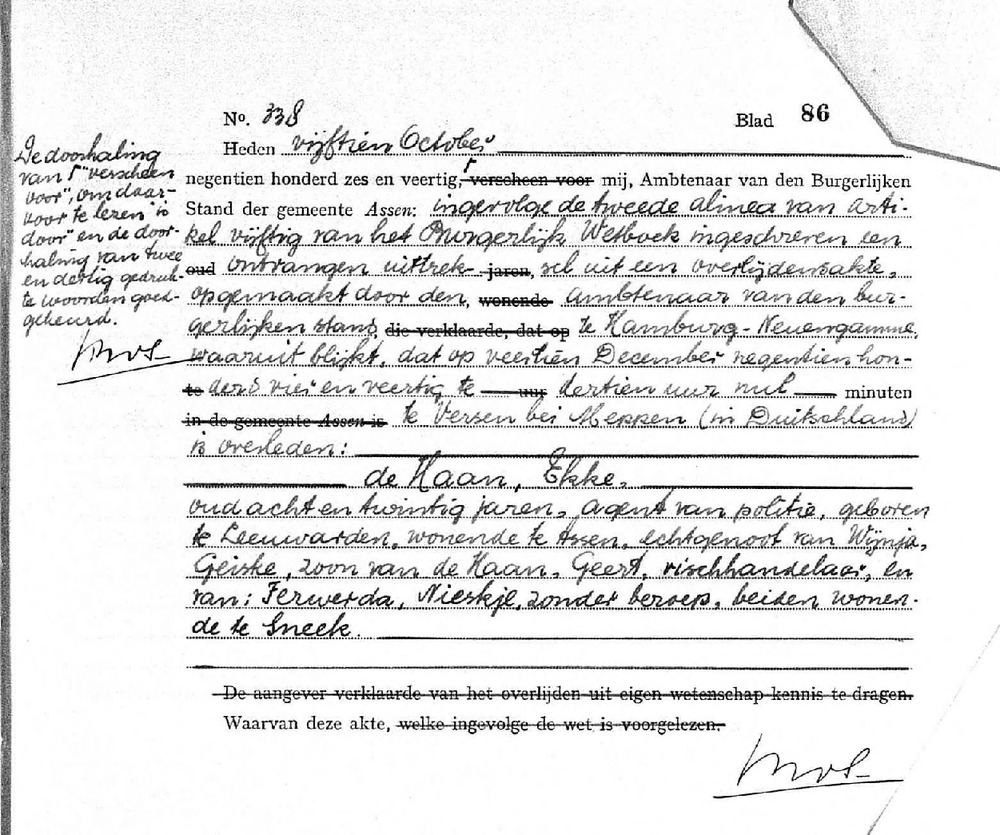 No. 338
Blad 86
Heden vijftien October
negentien honderd zes en veertig, ⌈ verscheen voor mij, Ambtenaar van den Burgerlijken
Stand der gemeente Assen: ingevolge de tweede alinea van arti-
kel vijftig van het Burgerlijk Wetboek ingeschreven een
oud ontvangen uittrek- jaren, sel uit een overlijdensakte,
opgemaakt door den, wonende ambtenaar van den bur-
gerlijken stand die verklaarde, dat op te Hamburg-Neuengamme,
waaruit blijkt, dat op veertien December negentien hon-
te derd vier en veertig te uur dertien uur nul minuten
in de gemeente Assen is te Versen bei Meppen (in Duitschland)
is overleden:
de Haan, Ekke,
oud acht en twintig jaren, agent van politie, geboren
te Leeuwarden, wonende te Assen, echtgenoot van Wijnja,
Geiske, zoon van de Haan, Geert, vischhandelaar, en
van: Ferwerda, Nieskje, zonder beroep, beiden wonen-
de te Sneek.
De aangever verklaarde van het overlijden uit eigen wetenschap kennis te dragen.
Waarvan deze akte, welke ingevolge de wet is voorgelezen.
De doorhaling
van ⌈ "verscheen
voor", om daar-
voor te lezen "is
door" en de door-
haling van twee
en dertig gedruk-
te woorden goed-
gekeurd.